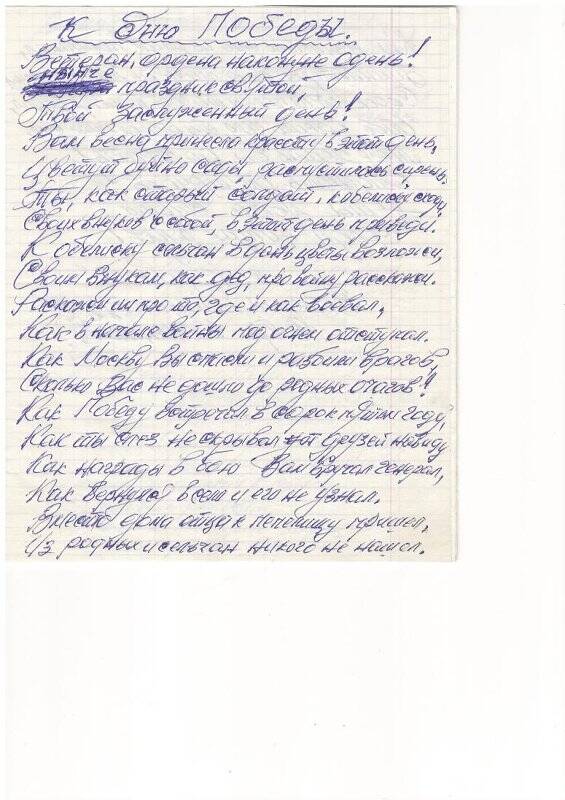 К Дню Победы.
Ветеран, ордена накануне одень!
нынче
праздник святой,
Твой заслуженный день!
Вам весна принесла красоту в этот день,
Цветут буйно сады, распустилась сирень.
Ты, как старый солдат, к обелиску сходи,
Своих внуков с собой, в этот день приведи.
К обелиску сельчан в дань цветы возложи,
Своим внукам, как дед, про войну расскажи.
Раскажи им про та, где и как воевал,
Как в начале войны под огнем отступал.
Как Москву Вы спасли и разбили врагов,
Сколько Вас не дошло до родных очагов!
Как Победу встречал в сорок пятом году,
Как ты слез не скрывал от друзей на виду
Как награды в бою Вам вручал генерал,
Как вернулся в село и его не узнал.
Вместо дома отца к пепелищу пришел,
Из родных и сельчан никого не нашел.